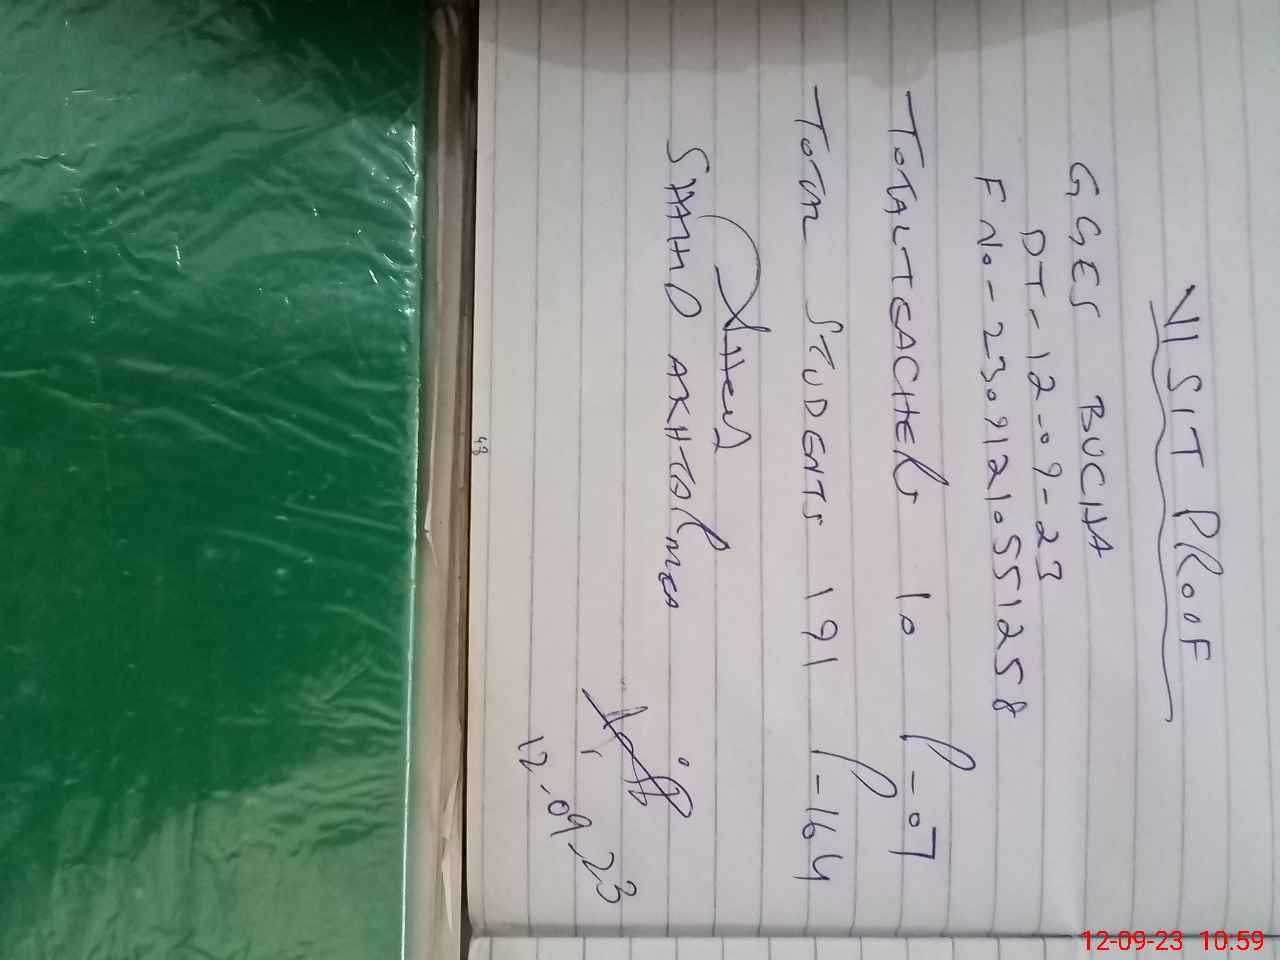 VISIT PROOF
GGES BUCHA
DT-12-09-23
F No-230912105551258
TOTAL TEACHERS 10 P-07
TOTAL STUDENTS 191 P-164
SHAHID AKHTAR MEA
12-09-23
48
12-09-23 10:59